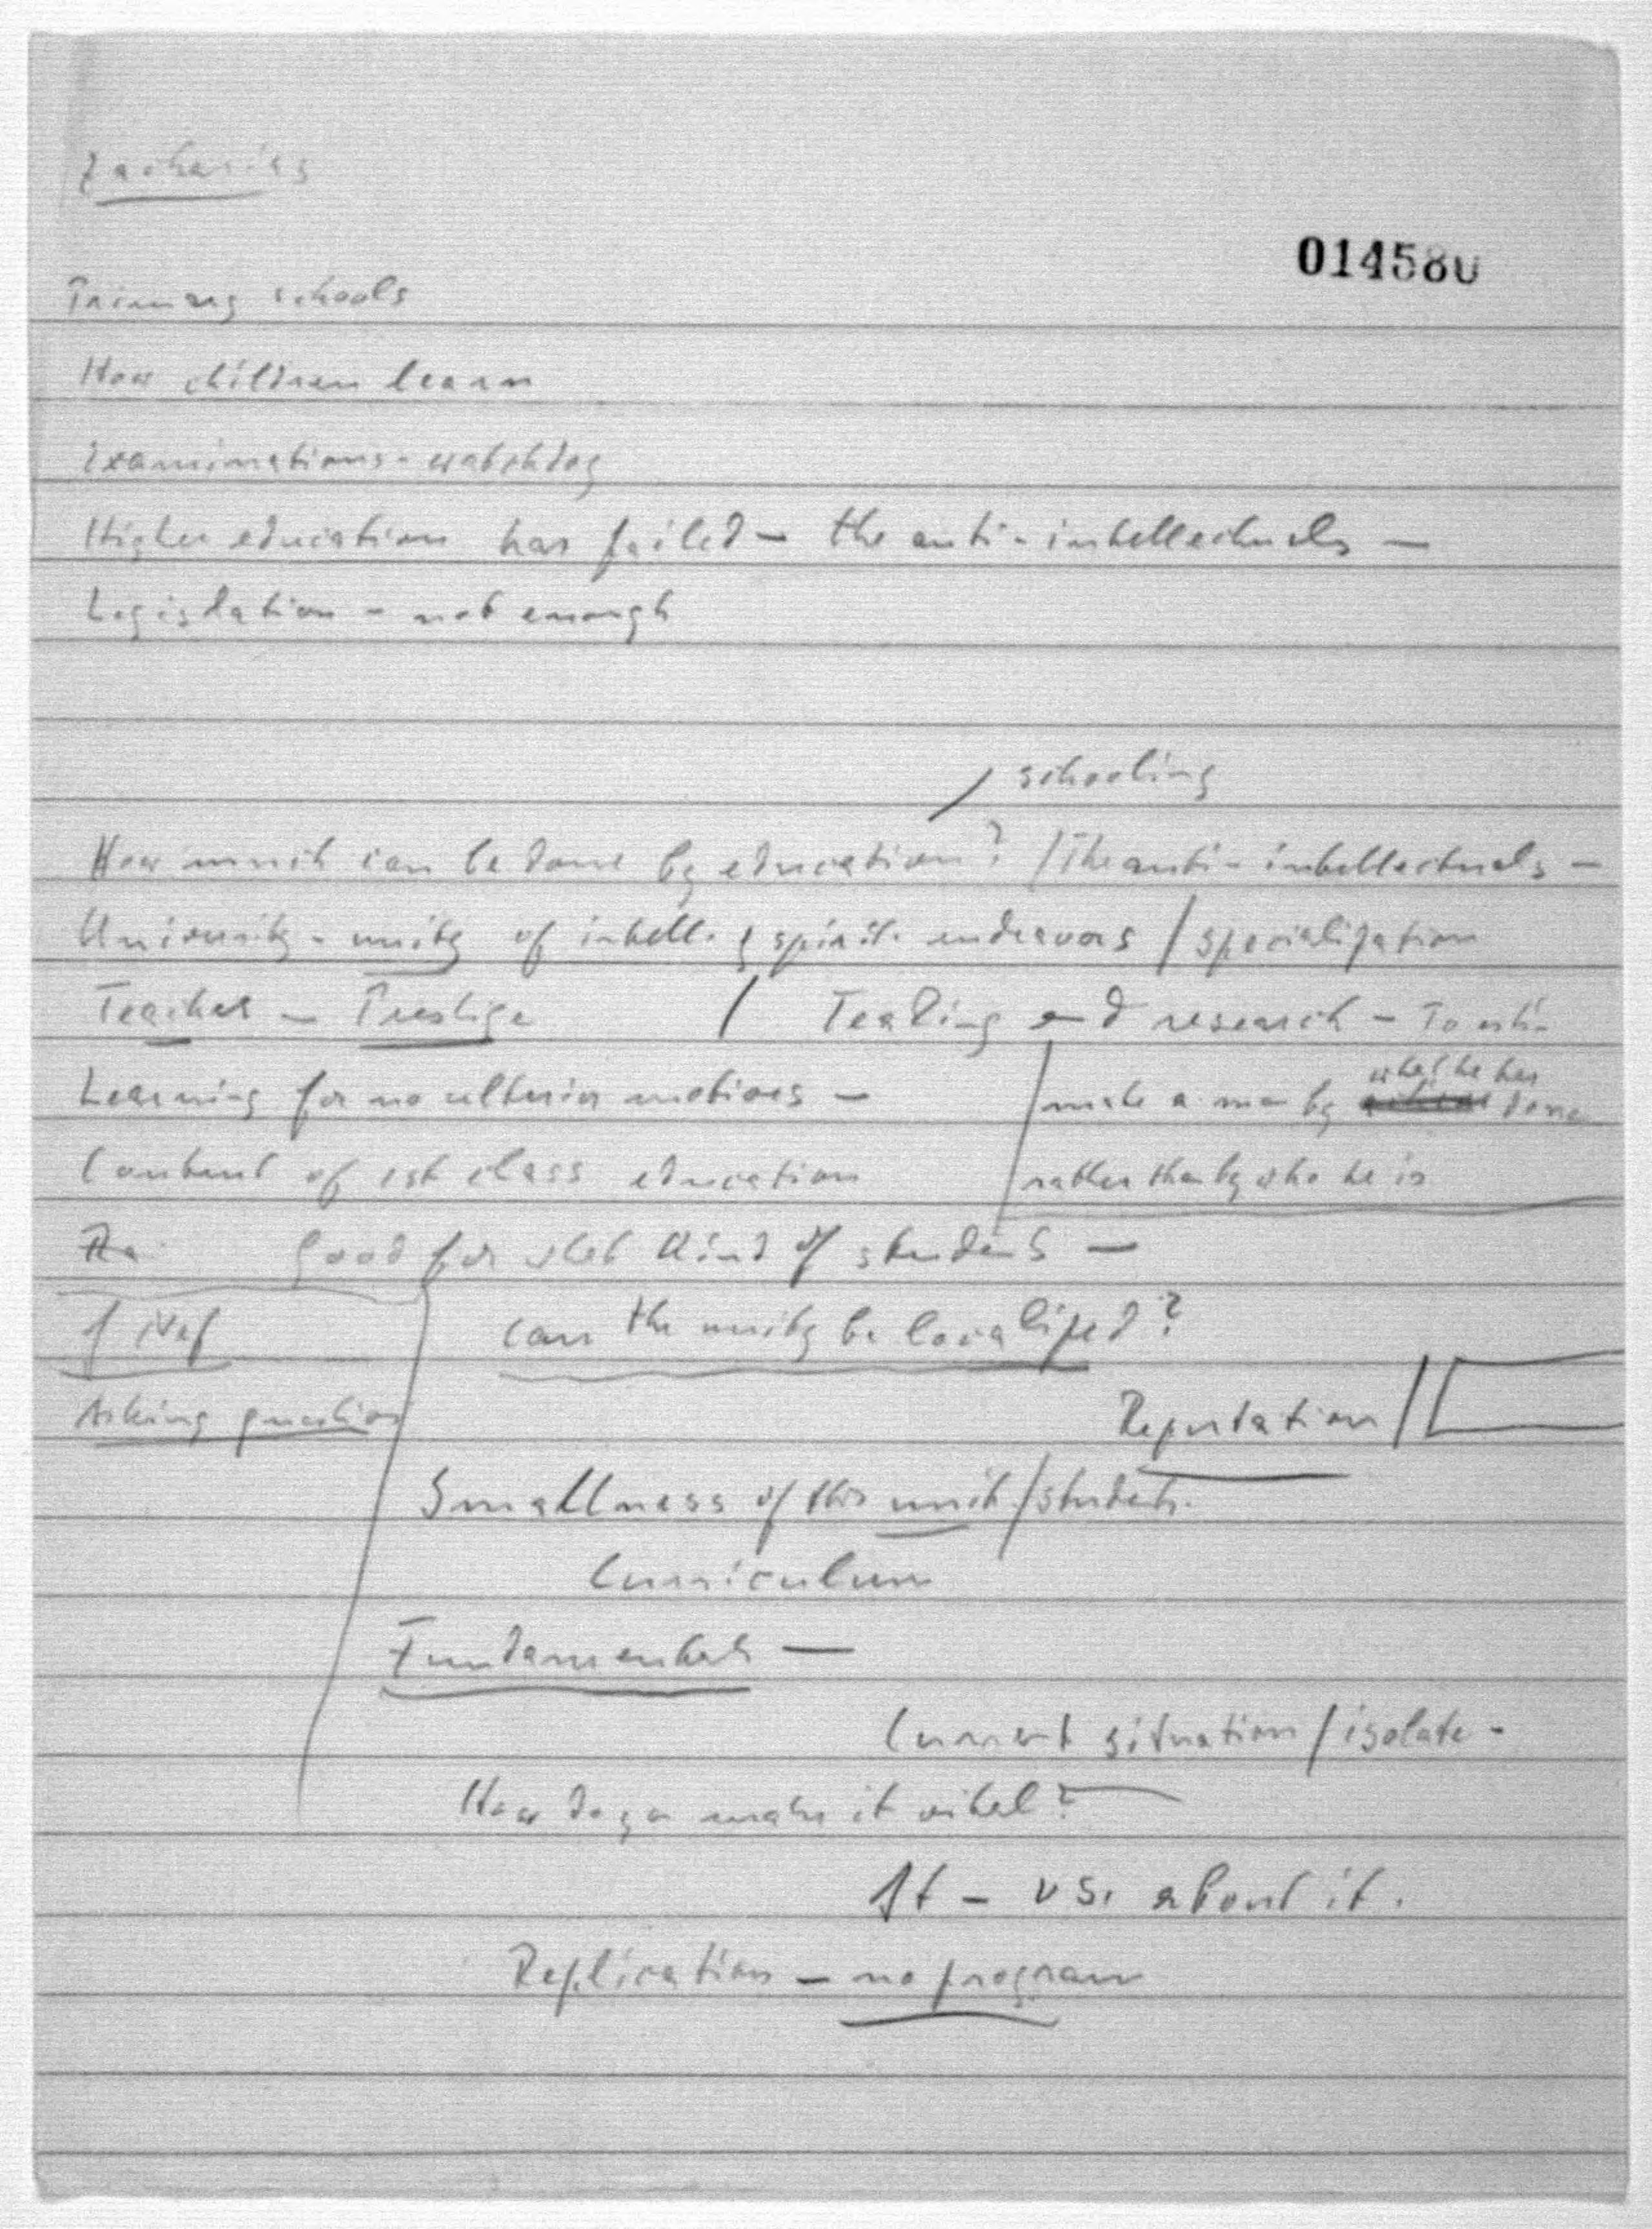 Zacharias
014580
Primary schools
How children learn
Examinations - watchdog
Higher education has failed - the anti-intellectuals -
Legislation - not enough
schooling
How much can be done by education? / The anti-intellectuals -
University - unity of intell. & spirit. endeavors / specialization
Teacher - Prestige / Teaching and research - To esti-
Learning for no ulterior motives - / mate a man by what he has done
Content of 1st class education / rather than by who he is
Good for what kind of students -
Can the unity be localized?
Asking question
Reputation //
Smallness of this unit / students.
Curriculum
Fundamentals -
Current situation / isolate -
How do you make it vital?
It - vs. about it.
Replication - no program